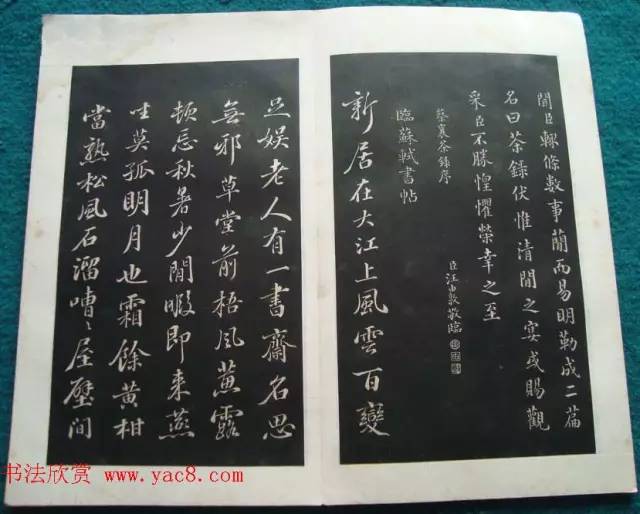 閒臣輒條數事蘭而易明勒成二篇
名曰茶錄伏惟清閒之宴或賜觀
采臣不勝惶懼榮幸之至
蔡襄茶錄序
臣汪由敦敬臨
臨蘇軾書帖
新居在大江上風雲百變
足娛老人有一書齋名思
無邪草堂前梧風蕙露
頓忘秋暑少閒暇即来燕
坐莫孤明月也霜餘黃柑
當熟松風石溜嘈〻屋壁间
书法欣赏 www.yac8.com